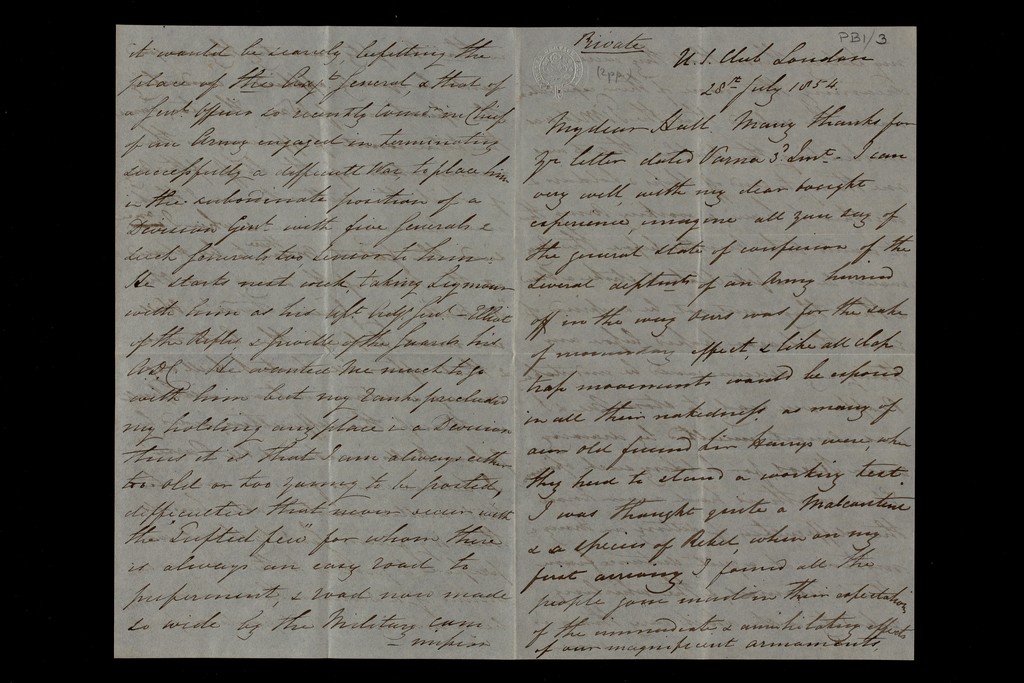 it would be scarcely befitting the
place of this Adjt. General & that of
a Genl. Officer so recently Comr. in Chief
of an Army engaged in terminating
successfully a difficult War, to place him
in the subordinate position of a
Division Genl. with five Generals &
such Generals too, Senior to him.
He starts next week, taking Seymour
with him as his Asst. Adjt. Genl. – Elliot
of the Rifles & of the Guards, his
ADC. He wanted me much to go
with him but my rank precluded
my holding any place in a Division
thus it is that I am always either
too old or too young to be posted,
difficulties that never occur with
the "Gifted few" for whom there
is always an easy road to
preferment, a road now made
so wide by the Military Com
=mission
PB1/3
Private
12pp
U.S. Club London
28th July 1854
My dear Hall, Many thanks for
yr letter dated Varna 3d Inst. I can
very well, with my dear bought
experience, imagine all you say of
the general state of confusion of the
several deptmts of an Army hurried
off in the way ours was for the sake
of momentary effect, & like all clap
trap movements would be exposed
in all their nakedness, as many of
our old friend Sir Harrys were, when
they had to stand a working test.
I was thought quite a Malcontent
& a species of Rebel, when on my
first arriving, I found all the
people gone mad in their expectations
of the immediate & annihilating effects
of our magnificent armaments,